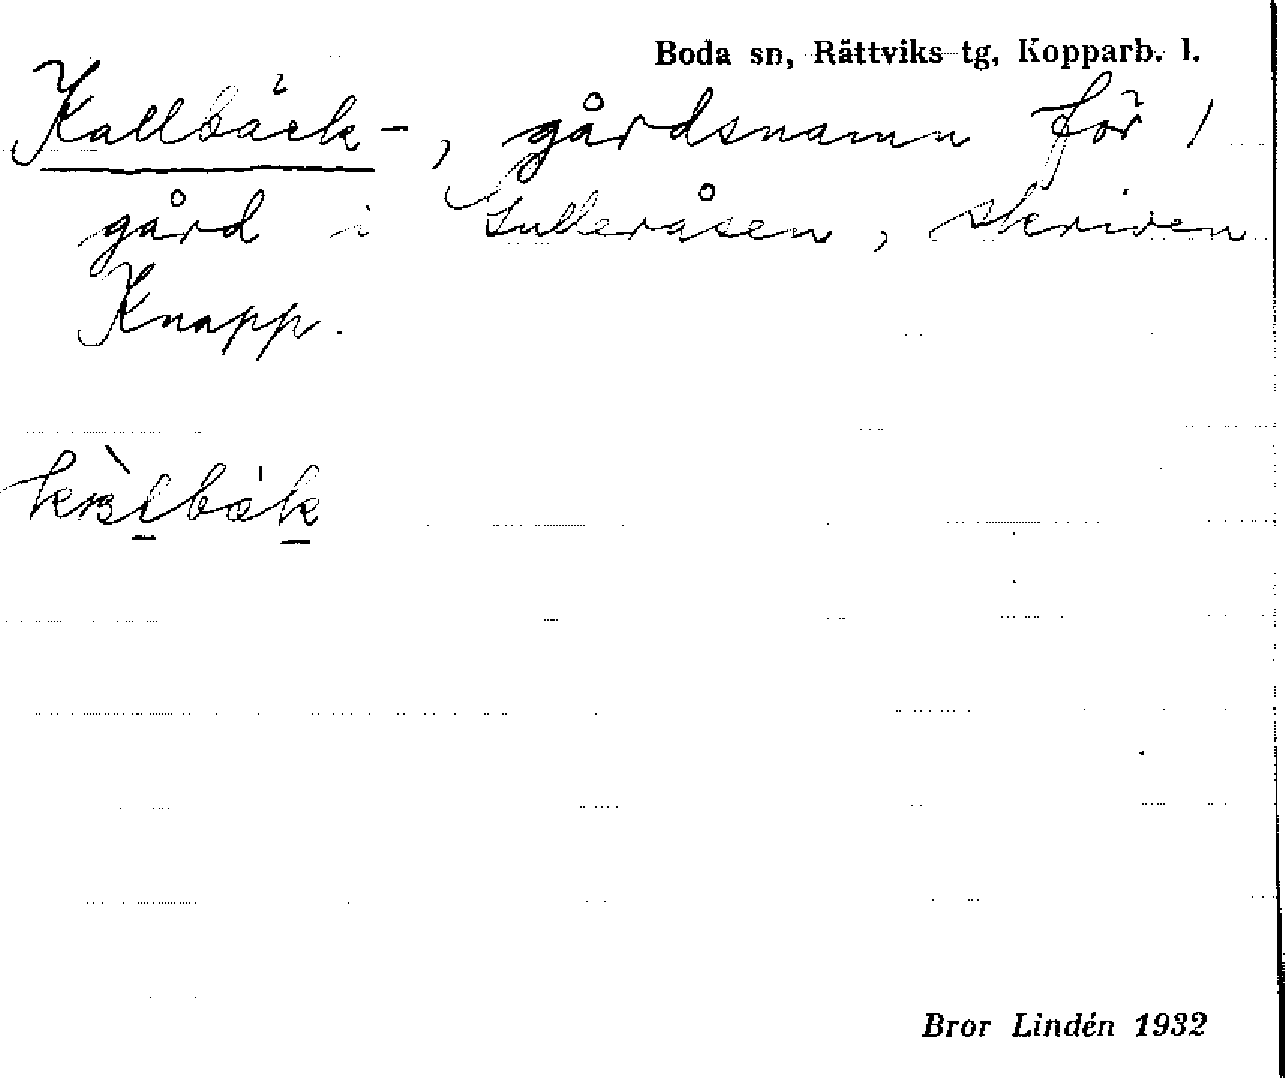 Boda sn, Rättviks tg, Kopparb. l.
Kallbäck-, gårdsnamn för 1
gård i Gulleråsen, skriven
Knapp.
Bror Lindén 1932